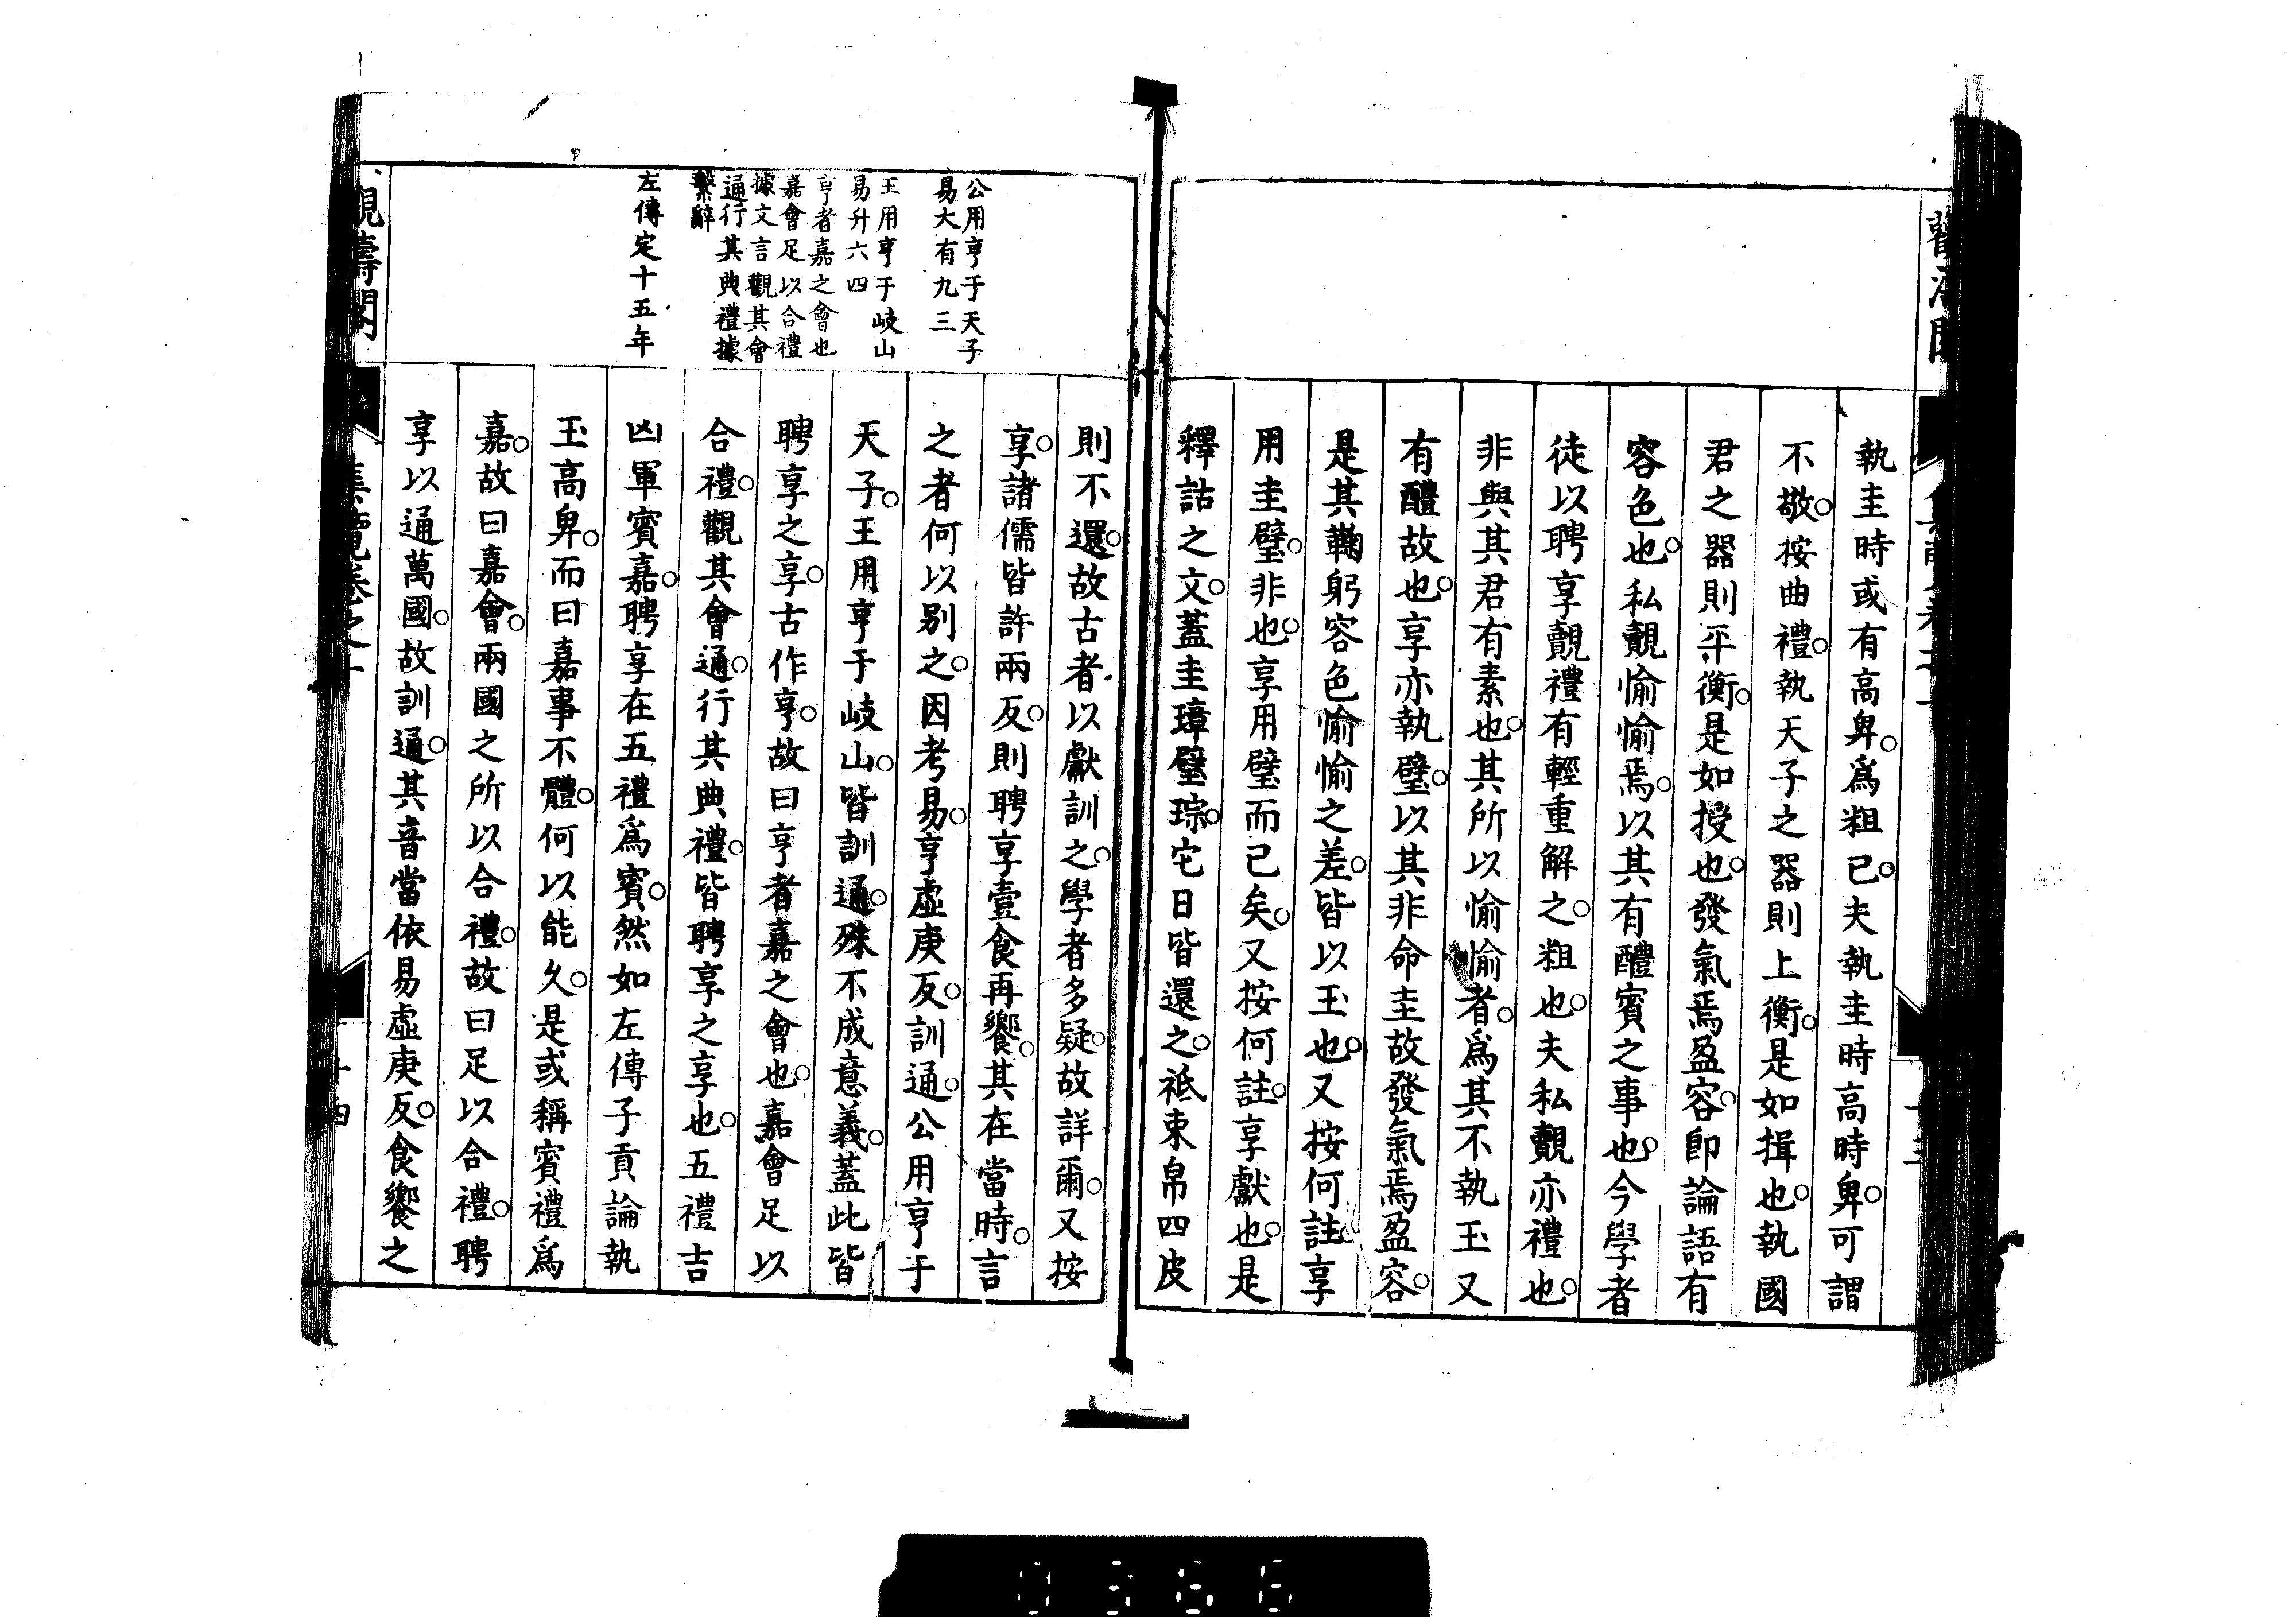 執圭時或有高卑。爲粗已。夫執圭時高時卑。可謂
不敬。按曲禮。執天子之器則上衡。是如揖也。執國
君之器則平衡。是如授也。發氣焉盈容。卽論語有
容色也。私覿愉愉焉。以其有醴賓之事也。今學者
徒以聘享覿禮有輕重解之。粗也。夫私覿亦禮也。
非與其君有素也。其所以愉愉者。爲其不執玉又
有醴故也。享亦執璧。以其非命圭故發氣焉盈容。
是其鞠躬容色愉愉之差。皆以玉也。又按何註。享
用圭璧。非也。享用璧而已矣。又按何註。享獻也。是
釋詁之文。蓋圭璋璧琮。它日皆還之。祗束帛四皮
公用亨于天子
易大有九三
王用亨于岐山
易升六四
亨者嘉之會也
嘉會足以合禮
據文言觀其會
通行其典禮據
繫辭
左傳定十五年
則不還。故古者以獻訓之。學者多疑。故詳爾。又按
享。諸儒皆許兩反。則聘享壹食再饗。其在當時。言
之者何以別之。因考易。亨虛庚反。訓通。公用亨于
天子。王用亨于岐山。皆訓通。殊不成意義。蓋此皆
聘享之享。古作亨。故曰亨者嘉之會也。嘉會足以
合禮。觀其會通。行其典禮。皆聘享之享也。五禮吉
凶軍賓嘉。聘享在五禮爲賓。然如左傳子貢論執
玉高卑。而曰嘉事不體。何以能久。是或稱賓禮爲
嘉。故曰嘉會。兩國之所以合禮。故曰足以合禮。聘
享以通萬國。故訓通。其音當依易虛庚反。食饗之
觀濤閣
集覽卷之十
十四